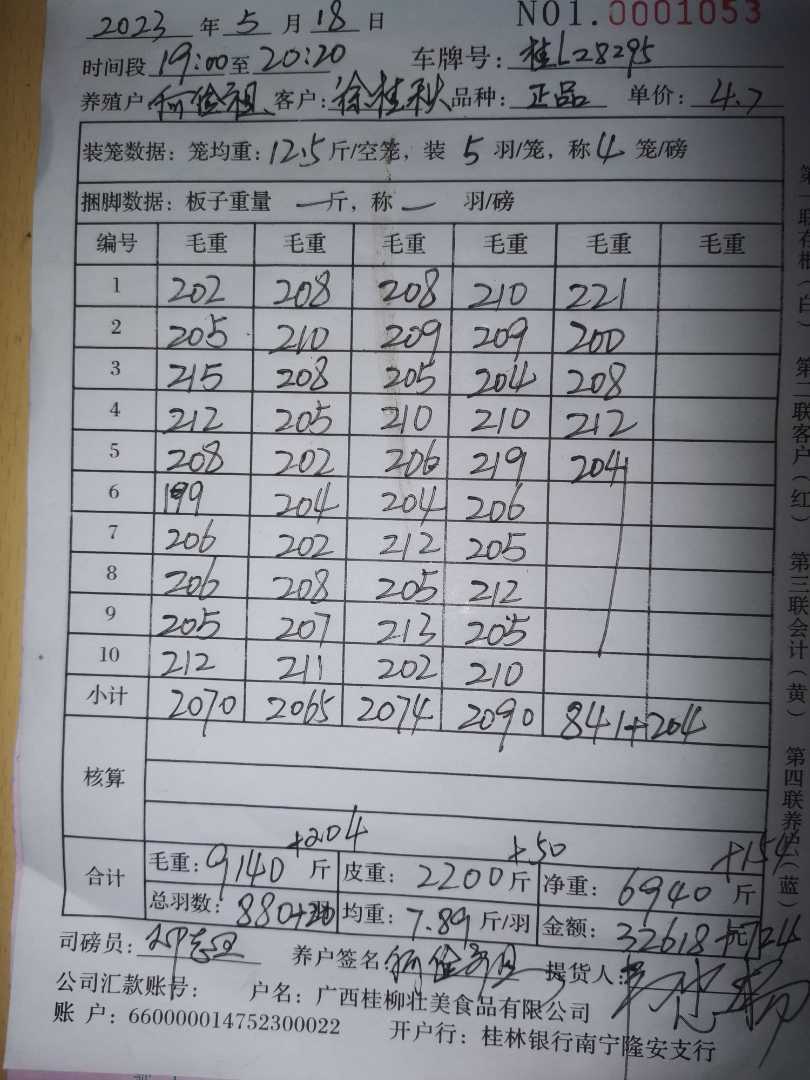 2023 年 5 月 18 日 NO1.0001053
时间段 19:00 至 20:20 车牌号: 桂L28295
养殖户 客户: 徐桂秋 品种: 正品 单价: 4.7
装笼数据: 笼均重: 12.5 斤/空笼, 装 5 羽/笼, 称 4 笼/磅
捆脚数据: 板子重量 — 斤, 称 — 羽/磅
编号 毛重 毛重 毛重 毛重 毛重 毛重
1 202 208 208 210 221
2 205 210 209 209 200
3 215 208 205 204 208
4 212 205 210 210 212
5 208 202 206 219 204
6 199 204 204 206
7 206 202 212 205
8 206 208 205 212
9 205 207 213 205
10 212 211 202 210
小计 2070 2065 2074 2090 841+204
核算
+204 +50 +154
合计 毛重: 9140 斤 皮重: 2200 斤 净重: 6940 斤
总羽数: 880+20 均重: 7.89 斤/羽 金额: 32618 元
司磅员: 养户签名: 提货人:
公司汇款账号: 户名: 广西桂柳壮美食品有限公司
账 户: 660000014752300022 开户行: 桂林银行南宁隆安支行
(白) 第二联客户(红) 第三联会计(黄) 第四联养户(蓝)